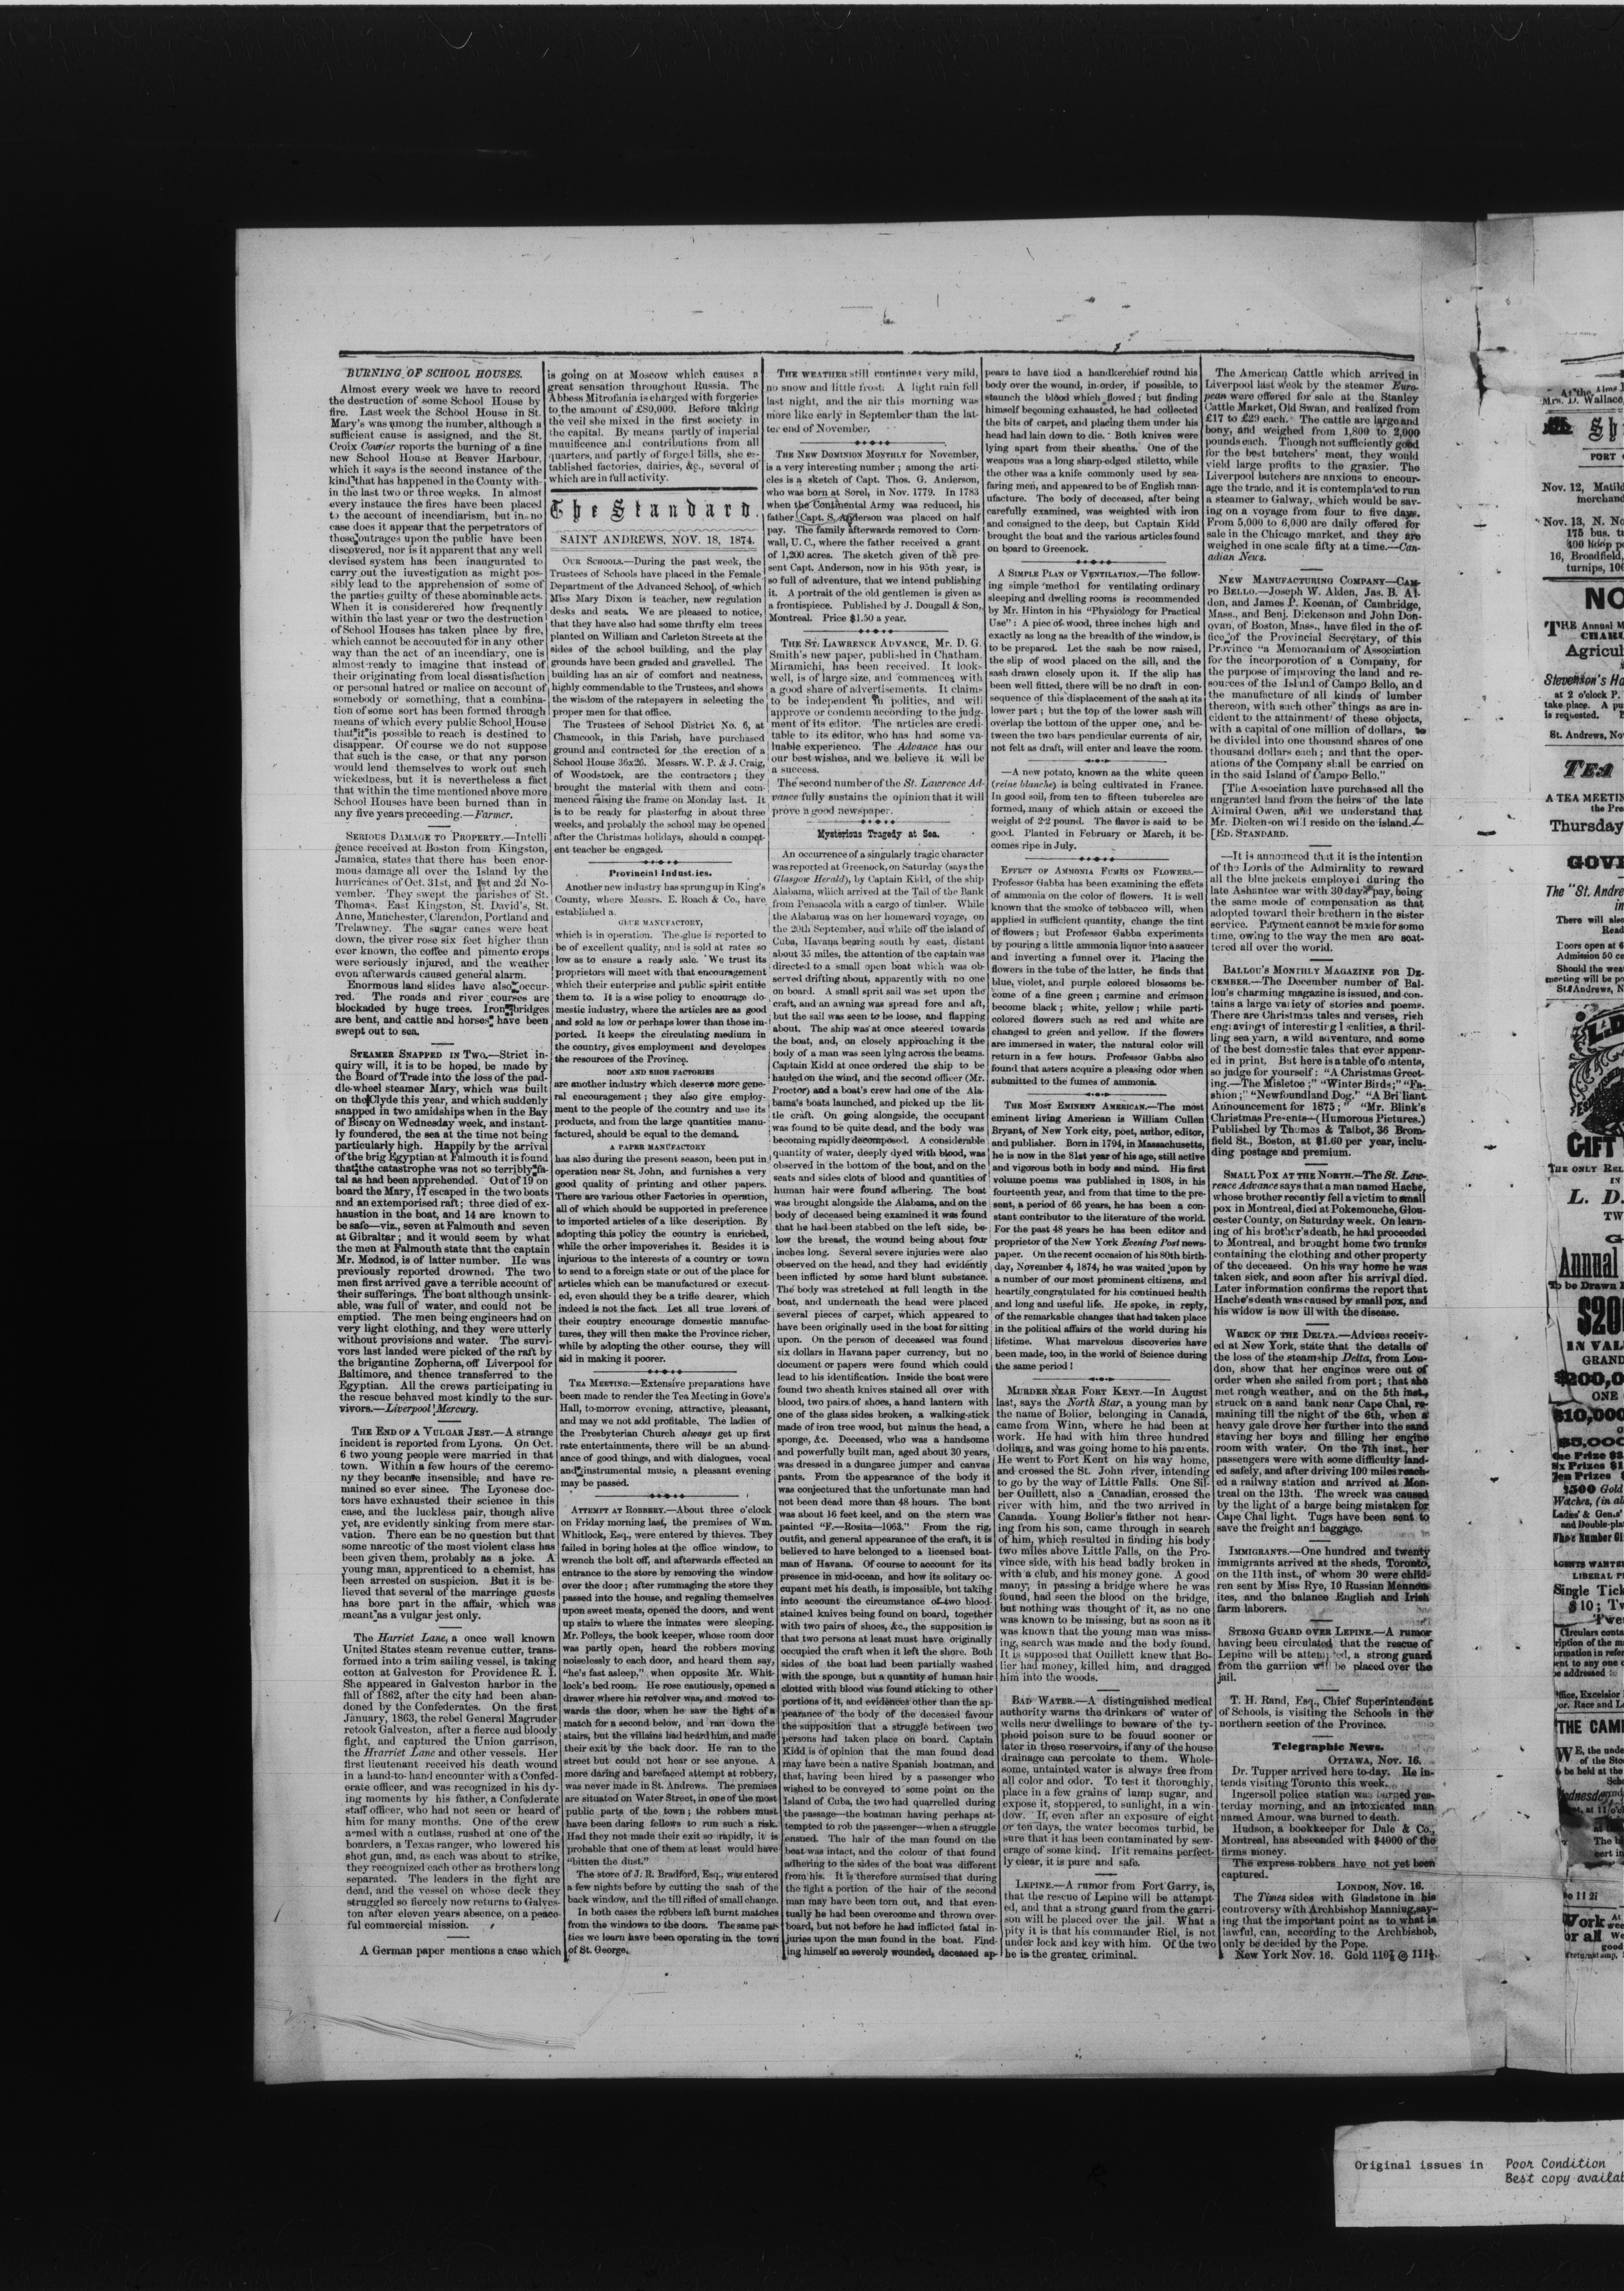 BURNING OF SCHOOL HOUSES.
Almost every week we have to record
the destruction of some School House by
fire. Last week the School House in St.
Mary's was among the number, although a
sufficient cause is assigned, and the St.
Croix Courier reports the burning of a fine
new School House at Beaver Harbour,
which it says is the second instance of the
kind that has happened in the County with-
in the last two or three weeks. In almost
every instance the fires have been placed
to the account of incendiarism, but in no
case does it appear that the perpetrators of
those outrages upon the public have been
discovered, nor is it apparent that any well
devised system has been inaugurated to
carry out the iuvestigation as might pos-
sibly lead to the apprehension of some of
the parties guilty of these abominable acts.
When it is considered how frequently
within the last year or two the destruction
of School Houses has taken place by fire,
which cannot be accounted for in any other
way than the act of an incendiary, one is
almost ready to imagine that instead of
their originating from local dissatisfaction
or personal hatred or malice on account of
somebody or something, that a combina-
tion of some sort has been formed through
means of which every public School House
that it is possible to reach is destined to
disappear. Of course we do not suppose
that such is the case, or that any person
would lend themselves to work out such
wickedness, but it is nevertheless a fact
that within the time mentioned above more
School Houses have been burned than in
any five years preceeding.—Farmer.
SERIOUS DAMAGE TO PROPERTY.—Intelli
gence received at Boston from Kingston,
Jamaica, states that there has been enor-
mous damage all over the Island by the
hurricanes of Oct. 31st, and 1st and 2d No-
vember. They swept the parishes of St.
Thomas, East Kingston, St. David's, St.
Anne, Manchester, Clarendon, Portland and
Trelawney. The sugar canes were beat
down, the river rose six feet higher than
ever known, the coffee and pimento crops
were seriously injured, and the weather
even afterwards caused general alarm.
Enormous land slides have also occur-
red. The roads and river courses are
blockaded by huge trees. Iron bridges
are bent, and cattle and horses have been
swept out to sea.
STEAMER SNAPPED IN TWO.—Strict in-
quiry will, it is to be hoped, be made by
the Board of Trade into the loss of the pad-
dle-wheel steamer Mary, which was built
on the Clyde this year, and which suddenly
snapped in two amidships when in the Bay
of Biscay on Wednesday week, and instant-
ly foundered, the sea at the time not being
particularly high. Happily by the arrival
of the brig Egyptian at Falmouth it is found
that the catastrophe was not so terribly fa-
tal as had been apprehended. Out of 19 on
board the Mary, 17 escaped in the two boats
and an extemporised raft; three died of ex-
haustion in the boat, and 14 are known to
be safe—viz., seven at Falmouth and seven
at Gibraltar; and it would seem by what
the men at Falmouth state that the captain
Mr. Medzod, is of latter number. He was
previously reported drowned. The two
men first arrived gave a terrible account of
their sufferings. The boat although unsink-
able, was full of water, and could not be
emptied. The men being engineers had on
very light clothing, and they were utterly
without provisions and water. The survi-
vors last landed were picked of the raft by
the brigantine Zopherna, off Liverpool for
Baltimore, and thence transferred to the
Egyptian. All the crews participating in
the rescue behaved most kindly to the sur-
vivors.—Liverpool Mercury.
THE END OF A VULGAR JEST.—A strange
incident is reported from Lyons. On Oct.
6 two young people were married in that
town. Within a few hours of the ceremo-
ny they became insensible; and have re-
mained so ever since. The Lyonese doc-
tors have exhausted their science in this
case, and the luckless pair, though alive
yet, are evidently sinking from mere star-
vation. There can be no question but that
some narcotic of the most violent class has
been given them, probably as a joke. A
young man, apprenticed to a chemist, has
been arrested on suspicion. But it is be-
lieved that several of the marriage guests
has bore part in the affair, which was
meant as a vulgar jest only.
The Harriet Lane, a once well known
United States steam revenue cutter, trans-
formed into a trim sailing vessel, is taking
cotton at Galveston for Providence R. I.
She appeared in Galveston harbor in the
fall of 1862, after the city had been aban-
doned by the Confederates. On the first
January, 1863, the rebel General Magruder
retook Galveston, after a fierce aud bloody
fight, and captured the Union garrison,
the Hrarriet Lane and other vessels. Her
first lieutenant received his death wound
in a hand-to-hand encounter with a Confed-
erate officer, and was recognized in his dy-
ing moments by his father, a Confederate
staff officer, who had not seen or heard of
him for many months. One of the crew
armed with a cutlass, rushed at one of the
boarders, a Texas ranger, who lowered his
shot gun, and, as each was about to strike,
they recognized each other as brothers long
separated. The leaders in the fight are
dead, and the vessel on whose deck they
struggled so fiercely now returns to Galves-
ton after eleven years absence, on a peace-
ful commercial mission.
A German paper mentions a case which
is going on at Moscow which causes a
great sensation throughout Russia. The
Abbess Mitrofania is charged with forgeries
to the amount of £80,000. Before taking
the veil she mixed in the first society in
the capital. By means partly of imperial
munificence and contributions from all
quarters, and partly of forged bills, she es-
tablished factories, dairies, &c., several of
which are in full activity.
The Standard.
SAINT ANDREWS, NOV. 18, 1874.
OUR SCHOOLS.—During the past week, the
Trustees of Schools have placed in the Female
Department of the Advanced School, of which
Miss Mary Dixon is teacher, new regulation
desks and seats. We are pleased to notice,
that they have also had some thrifty elm trees
planted on William and Carleton Streets at the
sides of the school building, and the play
grounds have been graded and gravelled. The
building has an air of comfort and neatness,
highly commendable to the Trustees, and shows
the wisdom of the ratepayers in selecting the
proper men for that office.
The Trustees of School District No. 6, at
Chamcook, in this Parish, have purchased
ground and contracted for the erection of a
School House 36x26. Messrs. W. P. & J. Craig,
of Woodstock, are the contractors; they
brought the material with them and com-
menced raising the frame on Monday last. It
is to be ready for plastering in about three
weeks, and probably the school may be opened
after the Christmas holidays, should a compet-
ent teacher be engaged.
Provincial Industries.
Another new industry has sprung up in King's
County, where Messrs. E. Roach & Co., have
established a.
GLUE MANUFACTORY,
which is in operation. The glue is reported to
be of excellent quality, and is sold at rates so
low as to ensure a ready sale. We trust its
proprietors will meet with that encouragement
which their enterprise and public spirit entitle
them to. It is a wise policy to encourage do-
mestic industry, where the articles are as good
and sold as low or perhaps lower than those im-
ported. It keeps the circulating medium in
the country, gives employment and developes
the resources of the Province.
BOOT AND SHOE FACTORIES
are another industry which deserve more gene-
ral encouragement; they also give employ-
ment to the people of the country and use its
products, and from the large quantities manu-
factured, should be equal to the demand.
A PAPER MANUFACTORY
has also during the present season, been put in
operation near St. John, and furnishes a very
good quality of printing and other papers.
There are various other Factories in operation,
all of which should be supported in preference
to imported articles of a like description. By
adopting this policy the country is enriched,
while the other impoverishes it. Besides it is
injurious to the interests of a country or town
to send to a foreign state or out of the place for
articles which can be manufactured or execut-
ed, even should they be a trifle dearer, which
indeed is not the fact. Let all true lovers of
their country encourage domestic manufac-
tures, they will then make the Province richer,
while by adopting the other course, they will
aid in making it poorer.
TEA MEETING.—Extensive preparations have
been made to render the Tea Meeting in Gove's
Hall, to-morrow evening, attractive, pleasant,
and may we not add profitable. The ladies of
the Presbyterian Church always get up first
rate entertainments, there will be an abund-
ance of good things, and with dialogues, vocal
and instrumental music, a pleasant evening
may be passed.
ATTEMPT AT ROBBERY.—About three o'clock
on Friday morning last, the premises of Wm.
Whitlock, Esq., were entered by thieves. They
failed in boring holes at the office window, to
wrench the bolt off, and afterwards effected an
entrance to the store by removing the window
over the door; after rummaging the store they
passed into the house, and regaling themselves
upon sweet meats, opened the doors, and went
up stairs to where the inmates were sleeping.
Mr. Polleys, the book keeper, whose room door
was partly open, heard the robbers moving
noiselessly to each door, and heard them say,
"he's fast asleep," when opposite Mr. Whit-
lock's bed room. He rose cautiously, opened a
drawer where his revolver was, and moved to-
wards the door, when he saw the light of a
match for a second below, and ran down the
stairs, but the villains had heard him, and made
their exit by the back door. He ran to the
street but could not hear or see anyone. A
more daring and barefaced attempt at robbery,
was never made in St. Andrews. The premises
are situated on Water Street, in one of the most
public parts of the town; the robbers must
have been daring fellows to run such a risk.
Had they not made their exit so rapidly, it is
probable that one of them at least would have
"bitten the dust."
The store of J. R. Bradford, Esq., was entered
a few nights before by cutting the sash of the
back window, and the till rifled of small change.
In both cases the robbers left burnt matches
from the windows to the doors. The same par-
ties we learn have been operating in the town
of St. George.
THE WEATHER still continues very mild,
no snow and little frost. A light rain fell
last night, and the air this morning was
more like early in September than the lat-
ter end of November.
THE NEW DOMINION MONTHLY for November,
is a very interesting number; among the arti-
cles is a sketch of Capt. Thos. G. Anderson,
who was born at Sorel, in Nov. 1779. In 1783
when the Continental Army was reduced, his
father Capt. S. Anderson was placed on half
pay. The family afterwards removed to Corn-
wall, U. C., where the father received a grant
of 1,200 acres. The sketch given of the pre-
sent Capt. Anderson, now in his 95th year, is
so full of adventure, that we intend publishing
it. A portrait of the old gentlemen is given as
a frontispiece. Published by J. Dougall & Son,
Montreal. Price $1.50 a year.
THE ST. LAWRENCE ADVANCE, Mr. D. G.
Smith's new paper, published in Chatham,
Miramichi, has been received. It look-
well, is of large size, and commences with
a good share of advertisements. It claims
to be independent in politics, and will
approve or condemn according to the judg-
ment of its editor. The articles are credi-
table to its editor, who has had some va-
luable experience. The Advance has our
our best wishes, and we believe it will be
a success.
The second number of the St. Lawrence Ad-
vance fully sustains the opinion that it will
prove a good newspaper.
Mysterious Tragedy at Sea.
An occurrence of a singularly tragic character
was reported at Greenock, on Saturday (says the
Glasgow Herald), by Captain Kidd, of the ship
Alabama, which arrived at the Tail of the Bank
from Pensacola with a cargo of timber. While
the Alabama was on her homeward voyage, on
the 20th September, and while off the island of
Cuba, Havana bearing south by east, distant
about 35 miles, the attention of the captain was
directed to a small open boat which was ob-
served drifting about, apparently with no one
on board. A small sprit sail was set upon the
craft, and an awning was spread fore and aft,
but the sail was seen to be loose, and flapping
about. The ship was at once steered towards
the boat, and, on closely approaching it the
body of a man was seen lying across the beams.
Captain Kidd at once ordered the ship to be
hauled on the wind, and the second officer (Mr.
Proctor) and a boat's crew had one of the Ala-
bama's boats launched, and picked up the lit-
tle craft. On going alongside, the occupant
was found to be quite dead, and the body was
becoming rapidly decomposed. A considerable
quantity of water, deeply dyed with blood, was
observed in the bottom of the boat, and on the
seats and sides clots of blood and quantities of
human hair were found adhering. The boat
was brought alongside the Alabama, and on the
body of deceased being examined it was found
that he had been stabbed on the left side, be-
low the breast, the wound being about four
inches long. Several severe injuries were also
observed on the head, and they had evidently
been inflicted by some hard blunt substance.
The body was stretched at full length in the
boat, and underneath the head were placed
several pieces of carpet, which appeared to
have been originally used in the boat for sitting
upon. On the person of deceased was found
six dollars in Havana paper currency, but no
document or papers were found which could
lead to his identification. Inside the boat were
found two sheath knives stained all over with
blood, two pairs of shoes, a hand lantern with
one of the glass sides broken, a walking-stick
made of iron tree wood, but minus the head, a
sponge, &c. Deceased, who was a handsome
and powerfully built man, aged about 30 years,
was dressed in a dungaree jumper and canvas
pants. From the appearance of the body it
was conjectured that the unfortunate man had
not been dead more than 48 hours. The boat
was about 16 feet keel, and on the stern was
painted "F.—Rosita—1063." From the rig,
outfit, and general appearance of the craft, it is
believed to have belonged to a licensed boat-
man of Havana. Of course to account for its
presence in mid-ocean, and how its solitary oc-
cupant met his death, is impossible, but taking
into account the circumstance of two blood-
stained knives being found on board, together
with two pairs of shoes, &c., the supposition is
that two persons at least must have originally
occupied the craft when it left the shore. Both
sides of the boat had been partially washed
with the sponge, but a quantity of human hair
clotted with blood was found sticking to other
portions of it, and evidences other than the ap-
pearance of the body of the deceased favour
the supposition that a struggle between two
persons had taken place on board. Captain
Kidd is of opinion that the man found dead
may have been a native Spanish boatman, and
that, having been hired by a passenger who
wished to be conveyed to some point on the
Island of Cuba, the two had quarrelled during
the passage—the boatman having perhaps at-
tempted to rob the passenger—when a struggle
ensued. The hair of the man found on the
boat was intact, and the colour of that found
adhering to the sides of the boat was different
from his. It is therefore surmised that during
the fight a portion of the hair of the second
man may have been torn out, and that even-
tually he had been overcome and thrown over-
board, but not before he had inflicted fatal in-
juries upon the man found in the boat. Find-
ing himself so severely wounded, deceased ap-
pears to have tied a handkerchief round his
body over the wound, in order, if possible, to
staunch the blood which flowed; but finding
himself becoming exhausted, he had collected
the bits of carpet, and placing them under his
head had lain down to die. Both knives were
lying apart from their sheaths. One of the
weapons was a long sharp-edged stiletto, while
the other was a knife commonly used by sea-
faring men, and appeared to be of English man-
ufacture. The body of deceased, after being
carefully examined, was weighted with iron
and consigned to the deep, but Captain Kidd
brought the boat and the various articles found
on board to Greenock.
A SIMPLE PLAN OF VENTILATION.—The follow-
ing simple method for ventilating ordinary
sleeping and dwelling rooms is recommended
by Mr. Hinton in his "Physiology for Practical
Use": A piec of wood, three inches high and
exactly as long as the breadth of the window, is
to be prepared. Let the sash be now raised,
the slip of wood placed on the sill, and the
sash drawn closely upon it. If the slip has
been well fitted, there will be no draft in con-
sequence of this displacement of the sash at its
lower part; but the top of the lower sash will
overlap the bottom of the upper one, and be-
tween the two bars pendicular currents of air,
not felt as draft, will enter and leave the room.
—A new potato, known as the white queen
(reine blanche) is being cultivated in France.
In good soil, from ten to fifteen tubercles are
formed, many of which attain or exceed the
weight of 2·2 pound. The flavor is said to be
good. Planted in February or March, it be-
comes ripe in July.
EFFECT OF AMMONIA FUMES ON FLOWERS.—
Professor Gabba has been examining the effets
of ammonia on the color of flowers. It is well
known that the smoke of tobbacco will, when
applied in sufficient quantity, change the tint
of flowers; but Professor Gabba experiments
by pouring a little ammonia liquor into a saucer
and inverting a funnel over it. Placing the
flowers in the tube of the latter, he finds that
blue, violet, and purple colored blossoms be-
come of a fine green; carmine and crimson
become black; white, yellow; while parti-
colored flowers such as red and white are
changed to green and yellow. If the flowers
are immersed in water, the natural color will
return in a few hours. Professor Gabba also
found that asters acquire a pleasing odor when
submitted to the fumes of ammonia.
THE MOST EMINENT AMERICAN.—The most
eminent living American is William Cullen
Bryant, of New York city, poet, author, editor,
and publisher. Born in 1794, in Massachusetts,
he is now in the 81st year of his age, still active
and vigorous both in body and mind. His first
volume poems was published in 1808, in his
fourteenth year, and from that time to the pre-
sent, a period of 66 years, he has been a con-
stant contributor to the literature of the world.
For the past 48 years he has been editor and
proprietor of the New York Evening Post news-
paper. On the recent occasion of his 80th birth-
day, November 4, 1874, he was waited upon by
a number of our most prominent citizens, and
heartily congratulated for his continued health
and long and useful life. He spoke, in reply,
of the remarkable changes that had taken place
in the political affairs of the world during his
lifetime. What marvelous discoveries have
been made, too, in the world of Science during
the same period!
MURDER NEAR FORT KENT.—In August
last, says the North Star, a young man by
the name of Bolier, belonging in Canada,
came from Winn, where he had been at
work. He had with him three hundred
dollars, and was going home to his parents.
He went to Fort Kent on his way home,
and crossed the St. John river, intending
to go by the way of Little Falls. One Sil-
ber Ouillett, also a Canadian, crossed the
river with him, and the two arrived in
Canada. Young Bolier's father not hear-
ing from his son, came through in search
of him, which resulted in finding his body
two miles above Little Falls, on the Pro-
vince side, with his head badly broken in
with a club, and his money gone. A good
many, in passing a bridge where he was
found, had seen the blood on the bridge,
but nothing was thought of it, as no one
was known to be missing, but as soon as it
was known that the young man was miss-
ing, search was made and the body found.
It is supposed that Ouillett knew that Bo-
lier had money, killed him, and dragged
him into the woods.
BAD WATER.—A distinguished medical
authority warns the drinkers of water of
wells near dwellings to beware of the ty-
phoid poison sure to be found sooner or
later in these reservoirs, if any of the house
drainage can percolate to them. Whole-
some, untainted water is always free from
all color and odor. To test it thoroughly,
place in a few grains of lump sugar, and
expose it, stoppered, to sunlight, in a win-
dow. If, even after an exposure of eight
or ten days, the water becomes turbid, be
sure that it has been contaminated by sew-
erage of some kind. If it remains perfect-
ly clear, it is pure and safe.
LEPINE.—A rumor from Fort Garry, is,
that the rescue of Lepine will be attempt-
ed, and that a strong guard from the garri-
son will be placed over the jail. What a
pity it is that his commander Riel, is not
under lock and key with him. Of the two
he is the greater criminal.
The American Cattle which arrived in
Liverpool last week by the steamer Euro-
pean were offered for sale at the Stanley
Cattle Market, Old Swan, and realized from
£17 to £29 each. The cattle are large and
bony, and weighed from 1,800 to 2,000
pounds each. Though not sufficiently good
for the best butchers' meat, they would
yield large profits to the grazier. The
Liverpool butchers are anxions to encour-
age the trade, and it is contemplated to run
a steamer to Galway, which would be sav-
ing on a voyage from four to five days.
From 5,000 to 6,000 are daily offered for
sale in the Chicago market, and they are
weighed in one scale fifty at a time.—Can-
adian News.
NEW MANUFACTURING COMPANY—CAM-
PO BELLO.—Joseph W. Alden, Jas. B. Al-
don, and James P. Keenan, of Cambridge,
Mass., and Benj. Dickenson and John Don-
ovan, of Boston, Mass., have filed in the of-
fice of the Provincial Secretary, of this
Province "a Memorandum of Association
for the incorporotion of a Company, for
the purpose of improving the land and re-
sources of the Island of Campo Bello, and
the manufacture of all kinds of lumber
thereon, with such other things as are in-
cident to the attainment of these objects,
with a capital of one million of dollars, to
be divided into one thousand shares of one
thousand dollars each; and that the oper-
ations of the Company shall be carried on
in the said Island of Campo Bello."
[The Association have purchased all the
ungranted land from the heirs of the late
Admiral Owen, and we understand that
Mr. Dickenson will reside on the island.—
[ED. STANDARD.
—It is announced that it is the intention
of the Lords of the Admirality to reward
all the blue jackets employed during the
late Ashantee war with 30 days pay, being
the same mode of compensation as that
adopted toward their brothern in the sister
service. Payment cannot be made for some
time, owing to the way the men are scat-
tered all over the world.
BALLOU'S MONTHLY MAGAZINE FOR DE-
CEMBER.—The December number of Bal-
lou's charming magazine is issued, and con-
tains a large variety of stories and poems.
There are Christmas tales and verses, rich
engravings of interesting localities, a thril-
ling sea yarn, a wild adventure, and some
of the best domestic tales that ever appear-
ed in print. But here is a table of contents,
so judge for yourself: "A Christmas Greet-
ing.—The Misletoe;" "Winter Birds;" "Fa-
shion;" "Newfoundland Dog." "A Brilliant
Announcement for 1875;" "Mr. Blink's
Christmas Presents—(Humorous Pictures.)
Published by Thomes & Talbot, 36 Brom-
field St., Boston, at $1.60 per year, inclu-
ding postage and premium.
SMALL POX AT THE NORTH.—The St. Law-
rence Advance says that a man named Hache,
whose brother recently fell a victim to small
pox in Montreal, died at Pokemouche, Glou-
cester County, on Saturday week. On learn-
ing of his brother's death, he had proceeded
to Montreal, and brought home two trunks
containing the clothing and other property
of the deceased. On his way home he was
taken sick, and soon after his arrival died.
Later information confirms the report that
Hache's death was caused by small pox, and
his widow is now ill with the disease.
WRECK OF THE DELTA.—Advices receiv-
ed at New York, state that the details of
the loss of the steamship Delta, from Lon-
don, show that her engines were out of
order when she sailed from port; that she
met rough weather, and on the 5th inst.,
struck on a sand bank near Cape Chal, re-
maining till the night of the 6th, when a
heavy gale drove her further into the sand
staving her boys and filling her engine
room with water. On the 7th inst., her
passengers were with some difficulty land-
ed safely, and after driving 100 miles reach-
ed a railway station and arrived at Mon-
treal on the 13th. The wreck was caused
by the light of a barge being mistaken for
Cape Chal light. Tugs have been sent to
save the freight and baggage.
IMMIGRANTS.—One hundred and twenty
immigrants arrived at the sheds, Toronto,
on the 11th inst., of whom 30 were child-
ren sent by Miss Rye, 10 Russian Mennon-
ites, and the balance English and Irish
farm laborers.
STRONG GUARD OVER LEPINE.—A rumor
having been circulated that the rescue of
Lepine will be attempted, a strong guard
from the garriion will be placed over the
jail.
T. H. Rand, Esq., Chief Superintendent
of Schools, is visiting the Schools in the
northern section of the Province.
Telegraphic News.
OTTAWA, Nov. 16.
Dr. Tupper arrived here to-day. He in-
tends visiting Toronto this week.
Ingersoll police station was burned yes-
terday morning, and an intoxicated man
named Amour, was burned to death.
Hudson, a bookkeeper for Dale & Co.,
Montreal, has absconded with $4000 of the
firms money.
The express robbers have not yet been
captured.
LONDON, Nov. 16.
The Times sides with Gladstone in his
controversy with Archbishop Manning, say-
ing that the important point as to what is
lawful, can, according to the Archbishob,
only be decided by the Pope.
New York Nov. 16. Gold 110⅞ @ 111⅛.
At the Alms
Mrs. D. Wallace
PORT
Nov. 12, Matild
merchan
Nov. 13, N. No
175 bus. tu
400 hoop po
16, Broadfield,
turnips, 100
NO
THE Annual M
CHARL
Agricul
Stevenson's Ha
at 2 o'clock P.
take place. A pu
is requested.
St. Andrews, Nov
TEA
A TEA MEETIN
the Pre
Thursday
GOVE
The "St. Andre
in
There will also
Read
Doors open at 6
Admission 50 ce
Should the wea
meeting will be po
St. Andrews, N
GIFT
THE ONLY REL
IN
L. D.
TW
G
Annual
To be Drawn
$20
IN VAL
GRAND
$200,0
ONE
$10,000
$5,000
One Prize $5
Six Prizes $1
Ten Prizes
$500 Gold
Watches, (in al
Ladies' & Gents'
and Double-pla
Whole Number Gi
AGENTS WANTE
LIBERAL P
Single Tick
$10; Tw
Twe
Circulars conta
ription of the m
ormation in refer
sent to any one o
be addressed to
Office, Excelsior
Cor. Race and L
THE CAM
WE, the unde
of the Sto
to be held at the
Scho
Wednesday
at 11 o'c
The b
Work At
or all We
good
Original issues in Poor Condition
Best copy availab